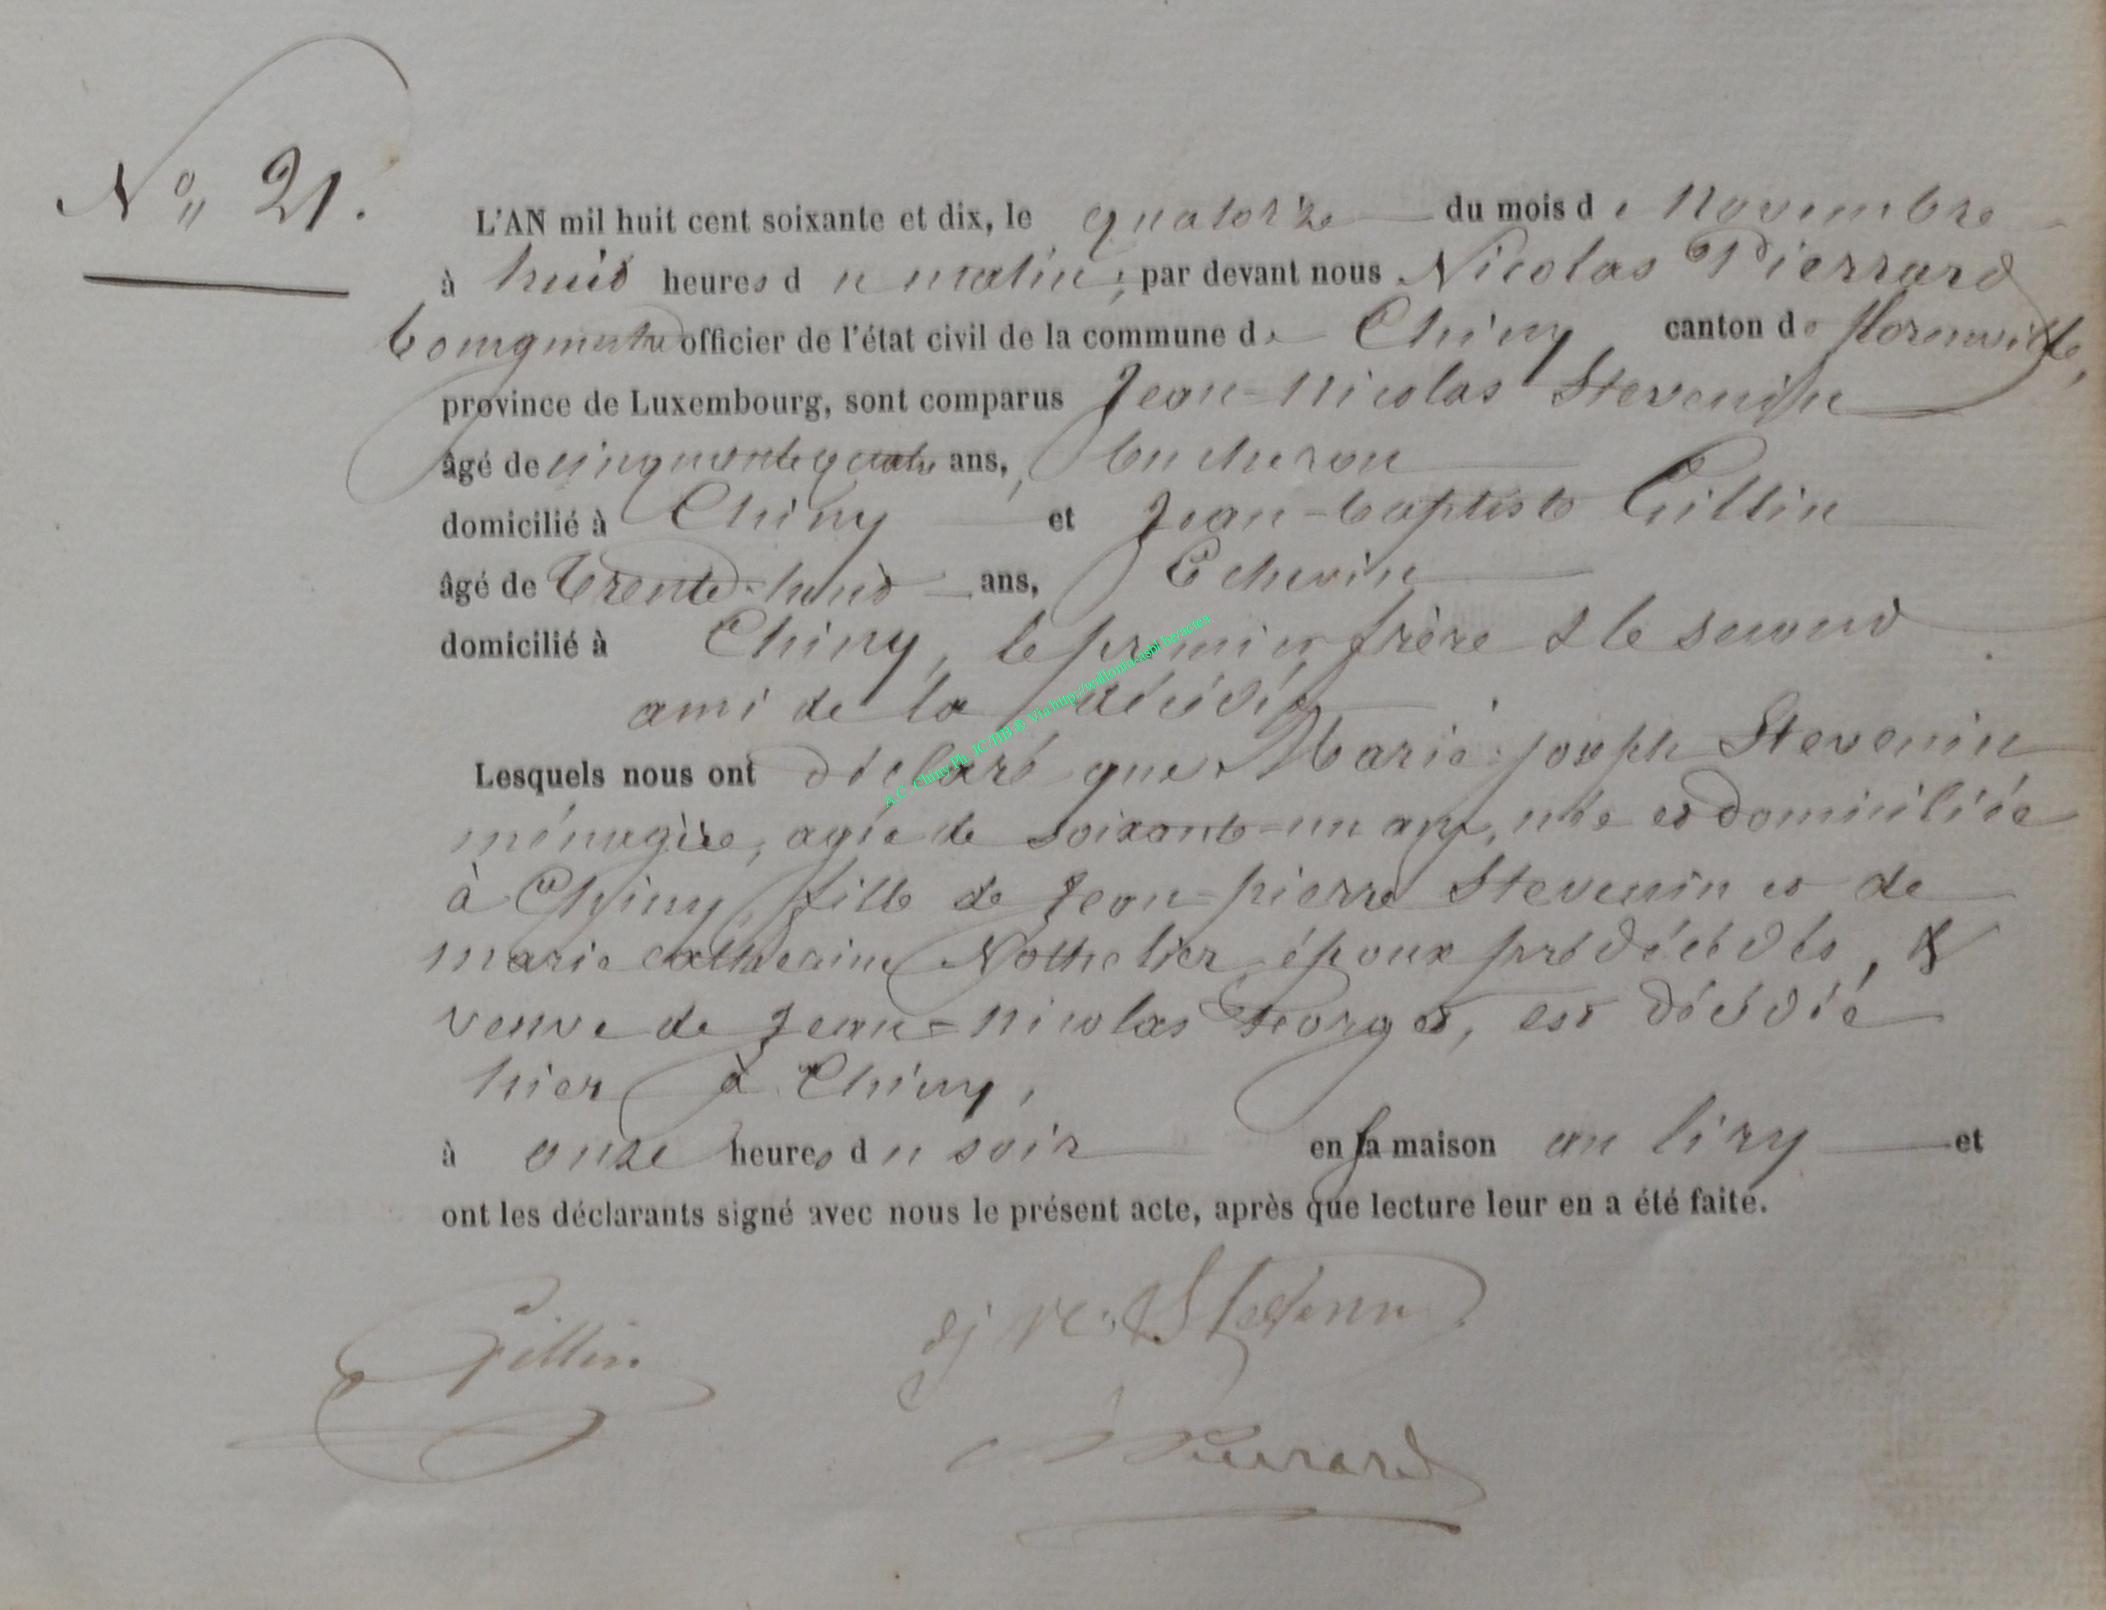 No 21.
L'AN mil huit cent soixante et dix, le quatorze du mois de Novembre
à huit heures du matin, par devant nous Nicolas Pierrard
bourgmestre officier de l'état civil de la commune de Chiny canton de florenville,
province de Luxembourg, sont comparus Jean-nicolas Stevenin
âgé de cinquante quatre ans, bucheron
domicilié à Chiny et Jean-baptiste Gillin
âgé de Trente-huit ans, Echevin
domicilié à Chiny, le premier frère & le second
ami de la décédée
Lesquels nous ont déclaré que Marie-joseph Stevenin
ménagère, agée de soixante-un ans, née et domiciliée
à Chiny, fille de Jean-pierre Stevenin et de
marie catherine époux prédécédés, &
veuve de Jean-nicolas Forget, est décédée
hier à Chiny,
à onze heures du soir en sa maison au liry et
ont les déclarants signé avec nous le présent acte, après que lecture leur en a été faite.
A.C. Chiny Ph. JC/DB ® Via http://wallonia-asbl.be/actes
Gillin Stevenin
Pierrard